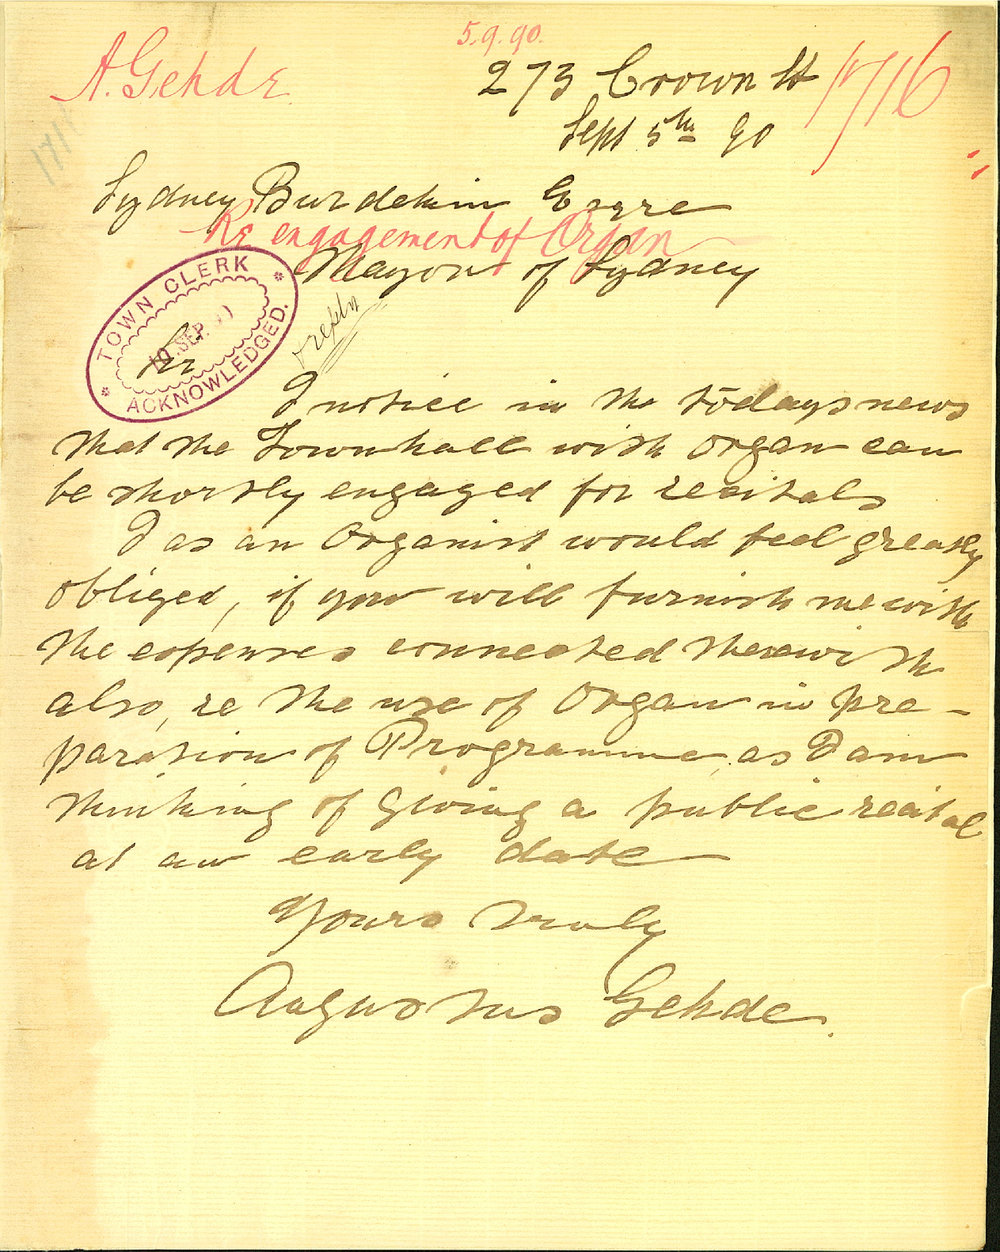 5.9.90.
A. Gehde
273 Crown St
1716
Sept 5th 90
Sydney Burdekin Esqre
Re engagement of Organ
Mayor of Sydney
TOWN CLERK
10 SEP. 90
ACKNOWLEDGED.
Sir
I notice in the todays news
that the Townhall with organ can
be shortly engaged for recitals
I as an Organist would feel greatly
obliged, if you will furnish me with
the expenses connected therewith
also, re the use of Organ in pre-
paration of Programme, as I am
thinking of giving a public recital
at an early date
Yours truly
Augustus Gehde.